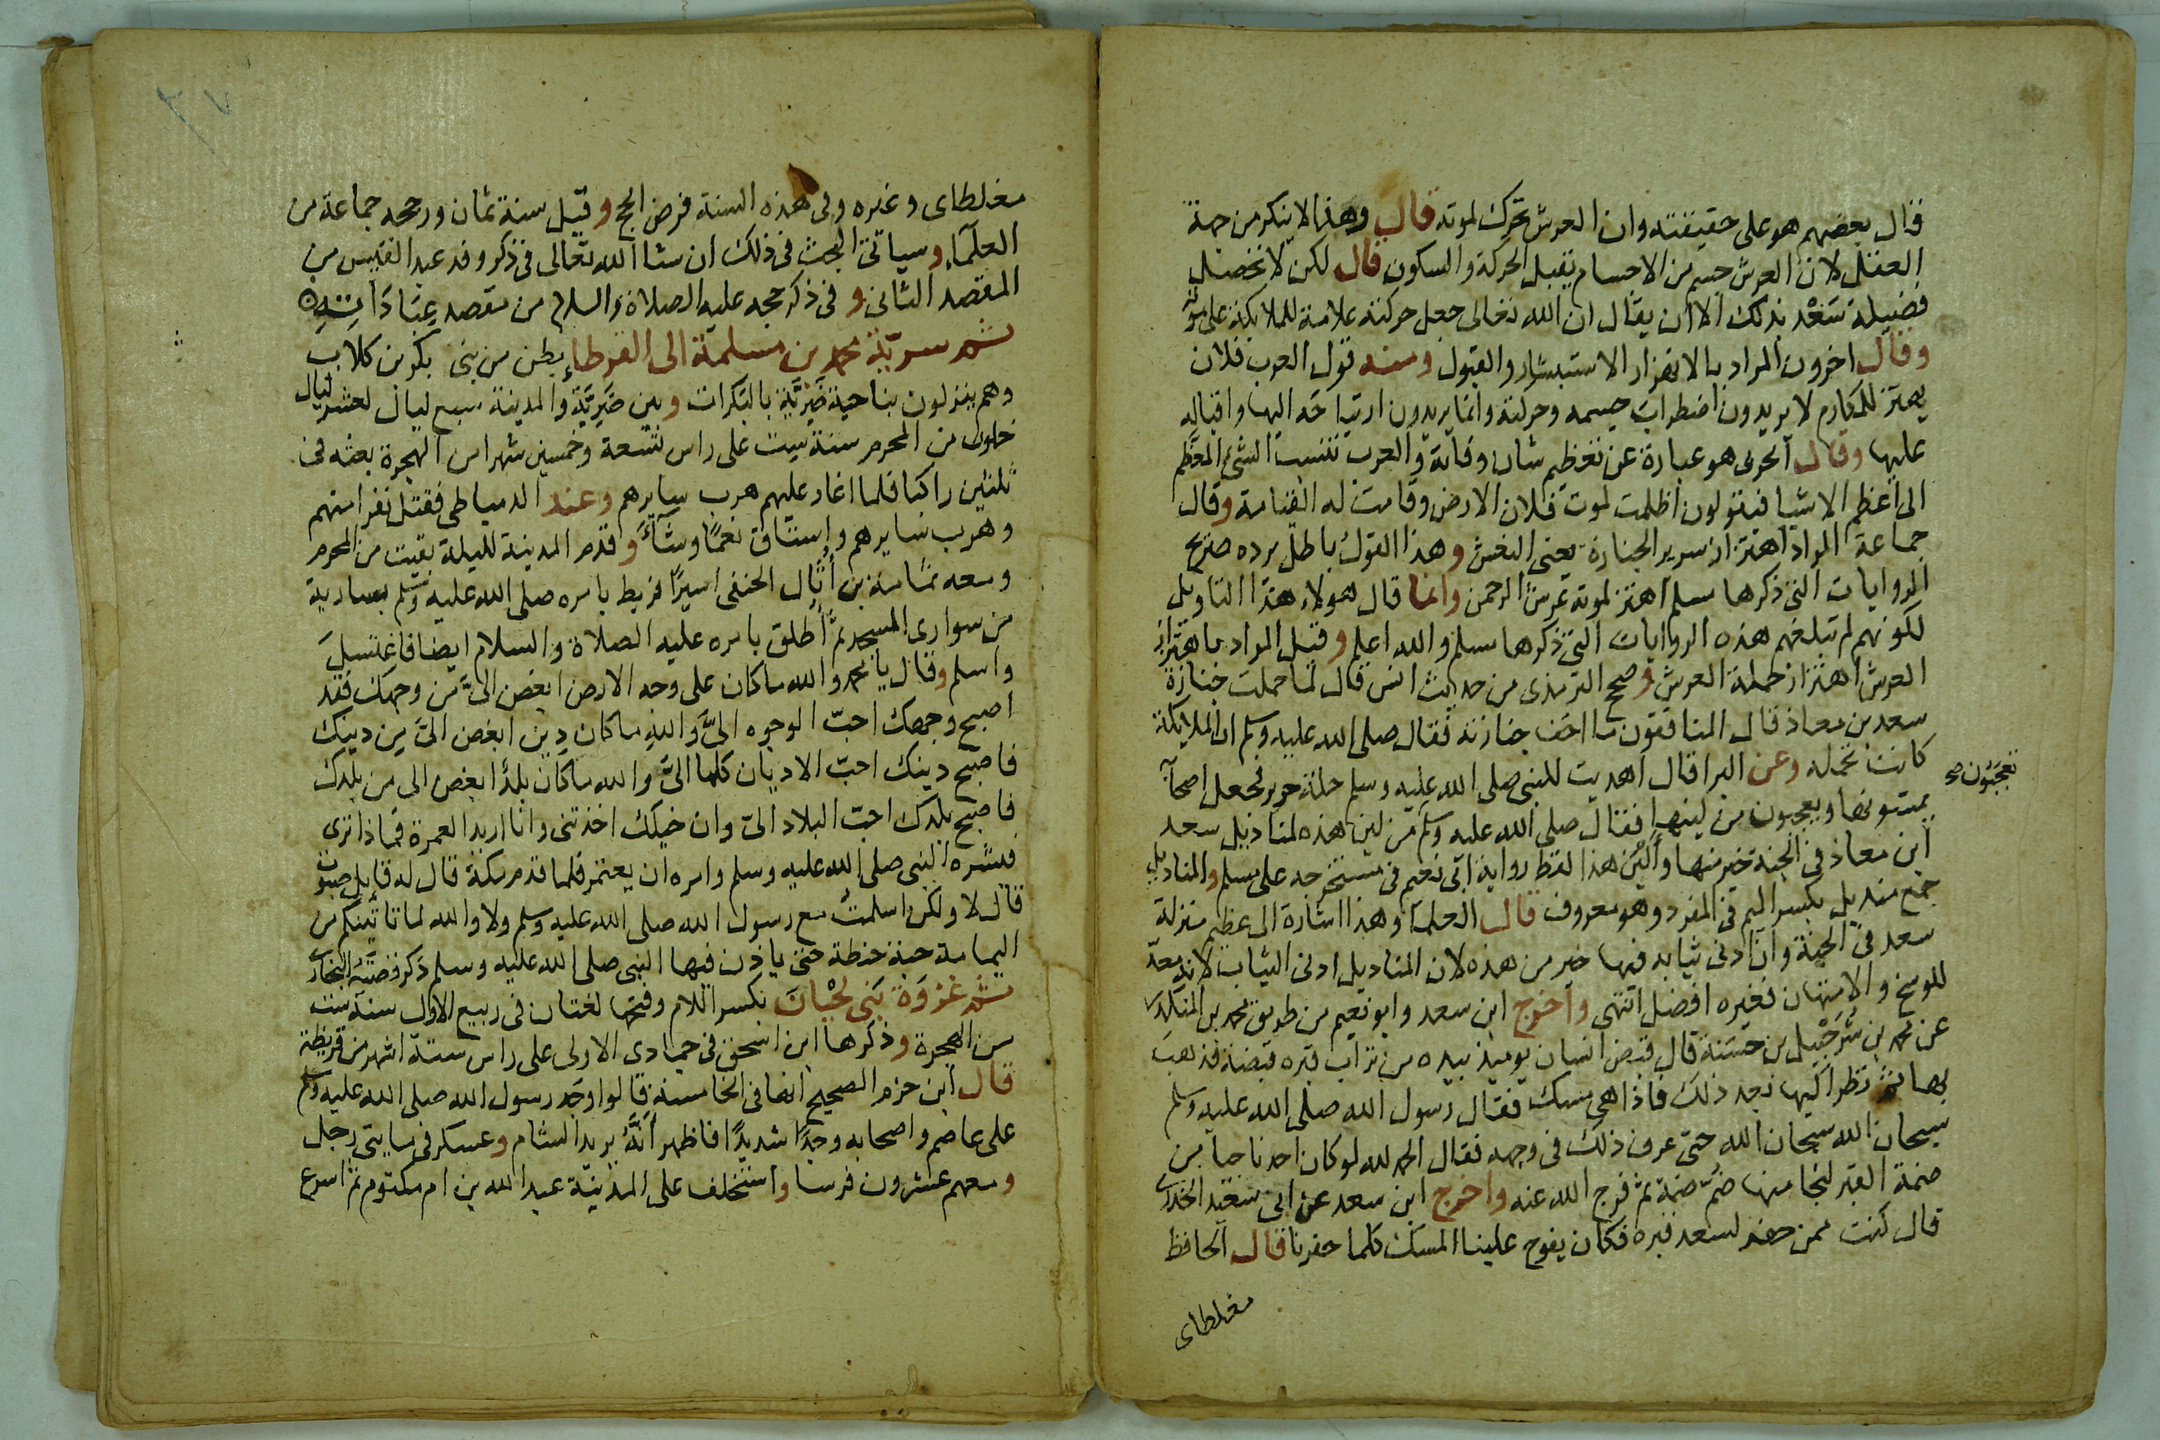 فقال بعضهم هو على حقيقته وان العرش تحرك لموته قال وهذا لا ينكر من جهة
العقل لان العرش جسم من الاجسام يقبل الحركة والسكون قال لكن لا تحصل
فضيلة سَعْد بذلك الا ان يقال ان الله تعالى جعل حركته علامة للملايكة على موته
وقال اخرون المراد بالاهتزاز الاستبشار والقبول ومنه قول العرب فلان
يهتز للمكارم لا يريدون اضطراب جسمه وحركته وانما يريدون ارتياحه اليها واقباله
عليها وقال الحربى هو عبارة عن تعظيم شان وفاته والعرب تنسب الشئ المعظم
الى اعظم الاشيا فيقولون اظلمت لموت فلان الارض وقامت له القيامة وقال
جماعة المراد اهتزاز سرير الجنازة يعنى النعش وهذا القول باطل يرده صريح
الروايات التى ذكرها مسلم اهتز لموته عرش الرحمن وانما قال هولاء هذا التاويل
لكونهم لم تبلغهم هذه الروايات التى ذكرها مسلم والله اعلم وقيل المراد باهتزاز
العرش اهتزاز حملة العرش وصحح الترمذى من حديث انس قال لما حملت جنازة
سعد بن معاذ قال المنافقون ما اخف جنازته فقال صلى الله عليه وسلم ان الملايكة
كانت تحمله وعن البرا قال اهديت للنبى صلى الله عليه وسلم حلة حرير فجعل اصحابه
تعجبون صح
يمسونها ويعجبون من لينها فقال صلى الله عليه وسلم من لين هذه لمناديل سعد
ابن معاذ فى الجنة خير منها وألين هذا لفظ رواية ابى نعيم فى مستخرجه على مسلم والمناديل
جمع منديل بكسر الميم فى المفرد وهو معروف قال العلمآ وهذا اشارة الى عظيم منزلة
سعد فى الجنة وان ادنى ثيابه فيها خير من هذه لان المناديل ادنى الثياب لانه معد
للوسخ والامتهان فغيره افضل انتهى واخرج ابن سعد وابو نعيم من طريق محمد بن المنكدر
عن محمد بن شرحبيل بن حسنة قال قبض انسان يوميذ بيده من تراب قبره قبضة فذهب
بها ثم نظر اليها بعد ذلك فاذا هى مسك فقال رسول الله صلى الله عليه وسلم
سبحان الله سبحان الله حتى عرف ذلك فى وجهه فقال الحمد لله لو كان احد ناجيا من
ضمة القبر لنجا منها ضُمّ ضمة ثم فرج الله عنه واخرج ابن سعد عن ابى سعيد الخدرى
قال كنت ممن حفر لسعد قبره فكان يفوح علينا المسك كلما حفرنا قال الحافظ
مغلطاى
٣٧
مغلطاى وغيره وفى هذه السنة فرض الحج وقيل سنة ثمان ورجحه جماعة من
العلمآء وسياتى البحث فى ذلك ان شا الله تعالى فى ذكر وفد عبد القيس من
المقصد الثانى وفى ذكر حجه عليه الصلاة والسلام من مقصد عباداته
ثم سرية محمد بن مسلمة الى القرطاء بطن من بنى بكر بن كلاب
وهم ينزلون بناحية ضَرِيَّة بالبكرات وبين ضَرِيَّة والمدينة سبع ليال لعشر ليال
خلون من المحرم سنة ست على راس تسعة وخمسين شهرا من الهجرة بعثه فى
ثلثين راكبا فلما اغار عليهم هرب سايرهم وعند الدمياطى فقتل نفرا منهم
وهرب سايرهم واستاق نعمًا وشآءً وقدم المدينة لليلة بقيت من المحرم
ومعه ثمامة بن أُثَال الحنفى اسيرًا فربط بامره صلى الله عليه وسلم بسارية
من سوارى المسجد ثم أطلق بامره عليه الصلاة والسلام ايضا فاغتسل
واسلم وقال يا محمد والله ما كان على وجه الارض ابغض الىَّ من وجهك فقد
اصبح وجهك احبّ الوجوه الىَّ والله ما كان دين ابغض الىَّ من دينك
فاصبح دينك احبّ الاديان كلها الىَّ والله ما كان بلدٌ ابغض الى من بلدك
فاصبح بلدك احبّ البلاد الىّ وان خيلك اخذتنى وانا اريد العمرة فماذا ترى
فبشره النبى صلى الله عليه وسلم وامره ان يعتمر فلما قدم مكة قال له قايل صبوت
قال لا ولكن اسلمتُ مع رسول الله صلى الله عليه وسلم ولا والله لا تاتيكم من
اليمامة حبة حنطة حتى ياذن فيها النبى صلى الله عليه وسلم ذكر قصته البخارى
ثم غزوة بَنى لحْيانَ بكسر اللام وفتحها لغتان فى ربيع الاول سنة ست
من الهجرة وذكرها ابن اسحق فى جمادى الاولى على راس ستة اشهر من قريظة
قال ابن حزم الصحيح انها فى الخامسة قالوا وجد رسول الله صلى الله عليه وسلم
على عاصم واصحابه وجدًا شديدًا فاظهر أنَّهُ يريد الشام وعسكر فى مايتى رجل
ومعهم عشرون فرسا واستخلف على المدينة عبد الله بن ام مكتوم ثم اسرع